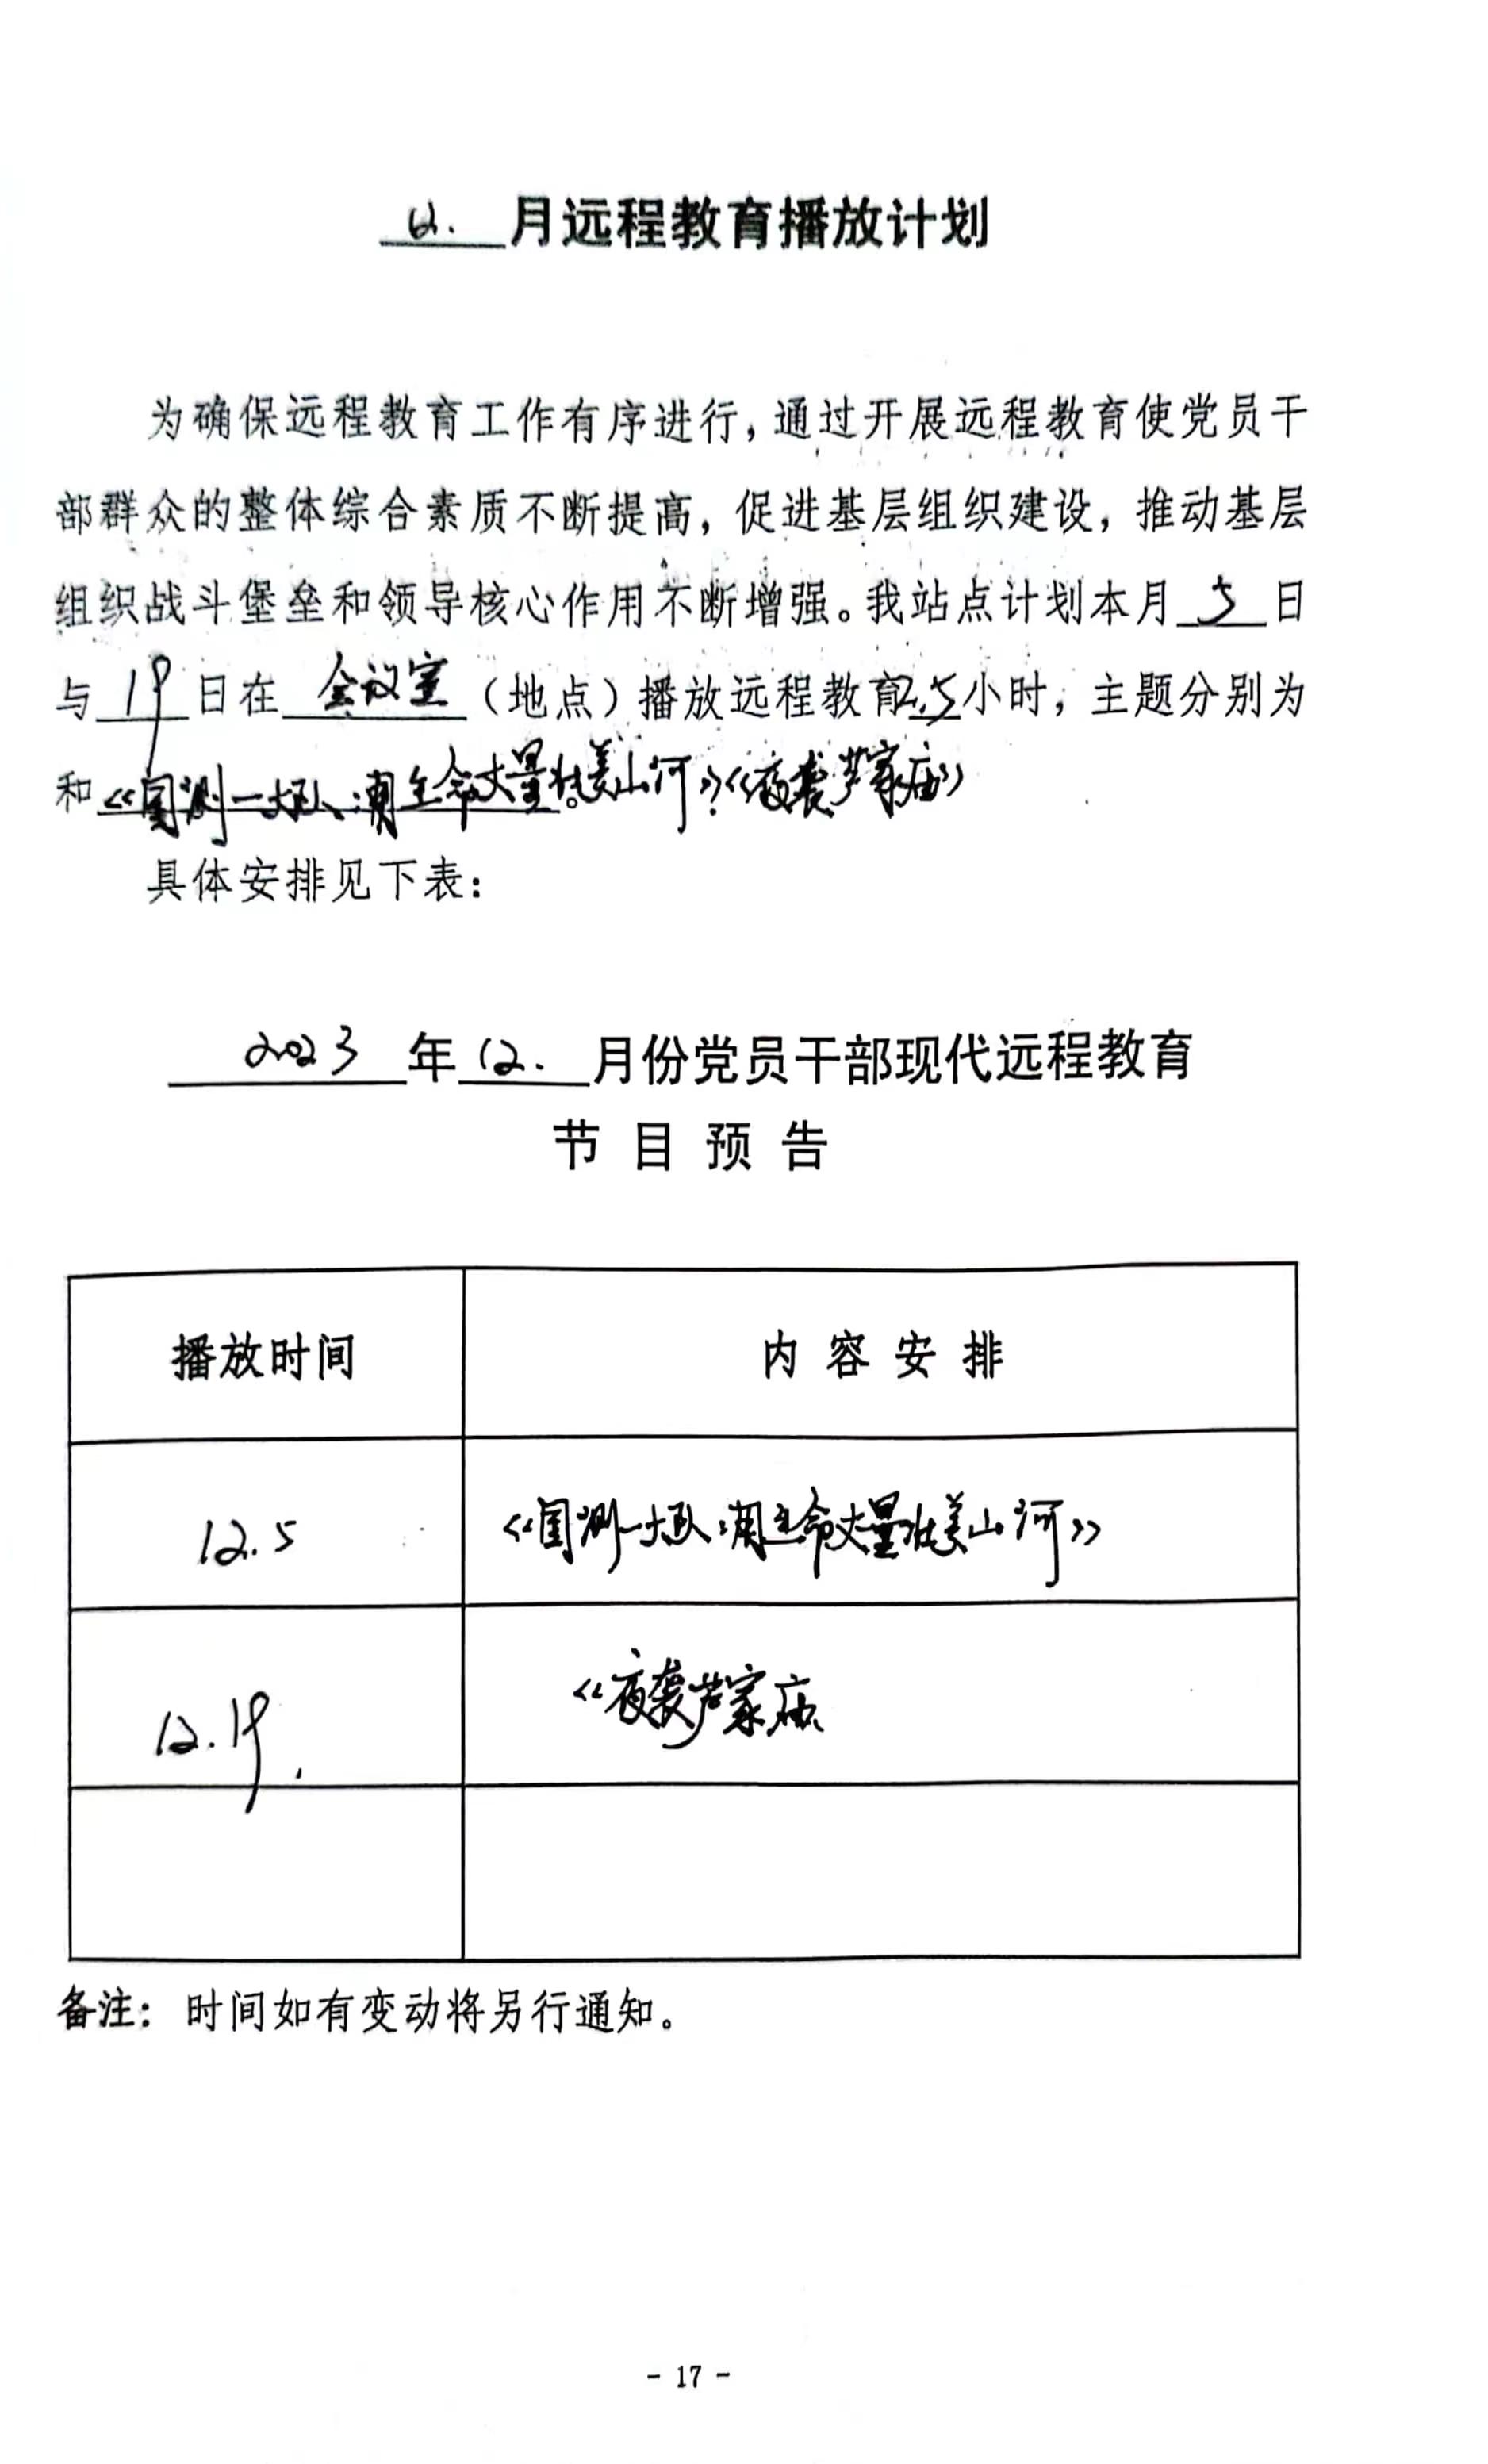 12. 月远程教育播放计划
为确保远程教育工作有序进行,通过开展远程教育使党员干
部群众的整体综合素质不断提高，促进基层组织建设，推动基层
组织战斗堡垒和领导核心作用不断增强。我站点计划本月 5 日
与 19 日在 会议室 （地点）播放远程教育2.5小时，主题分别为
和《国测一大队:用生命丈量壮美山河》《夜袭芦家庙》
具体安排见下表：
2023 年 12. 月份党员干部现代远程教育
节目预告
播放时间 内容安排
12.5 《国测一大队:用生命丈量壮美山河》
12.19. 《夜袭芦家庙
备注：时间如有变动将另行通知。
- 17 -